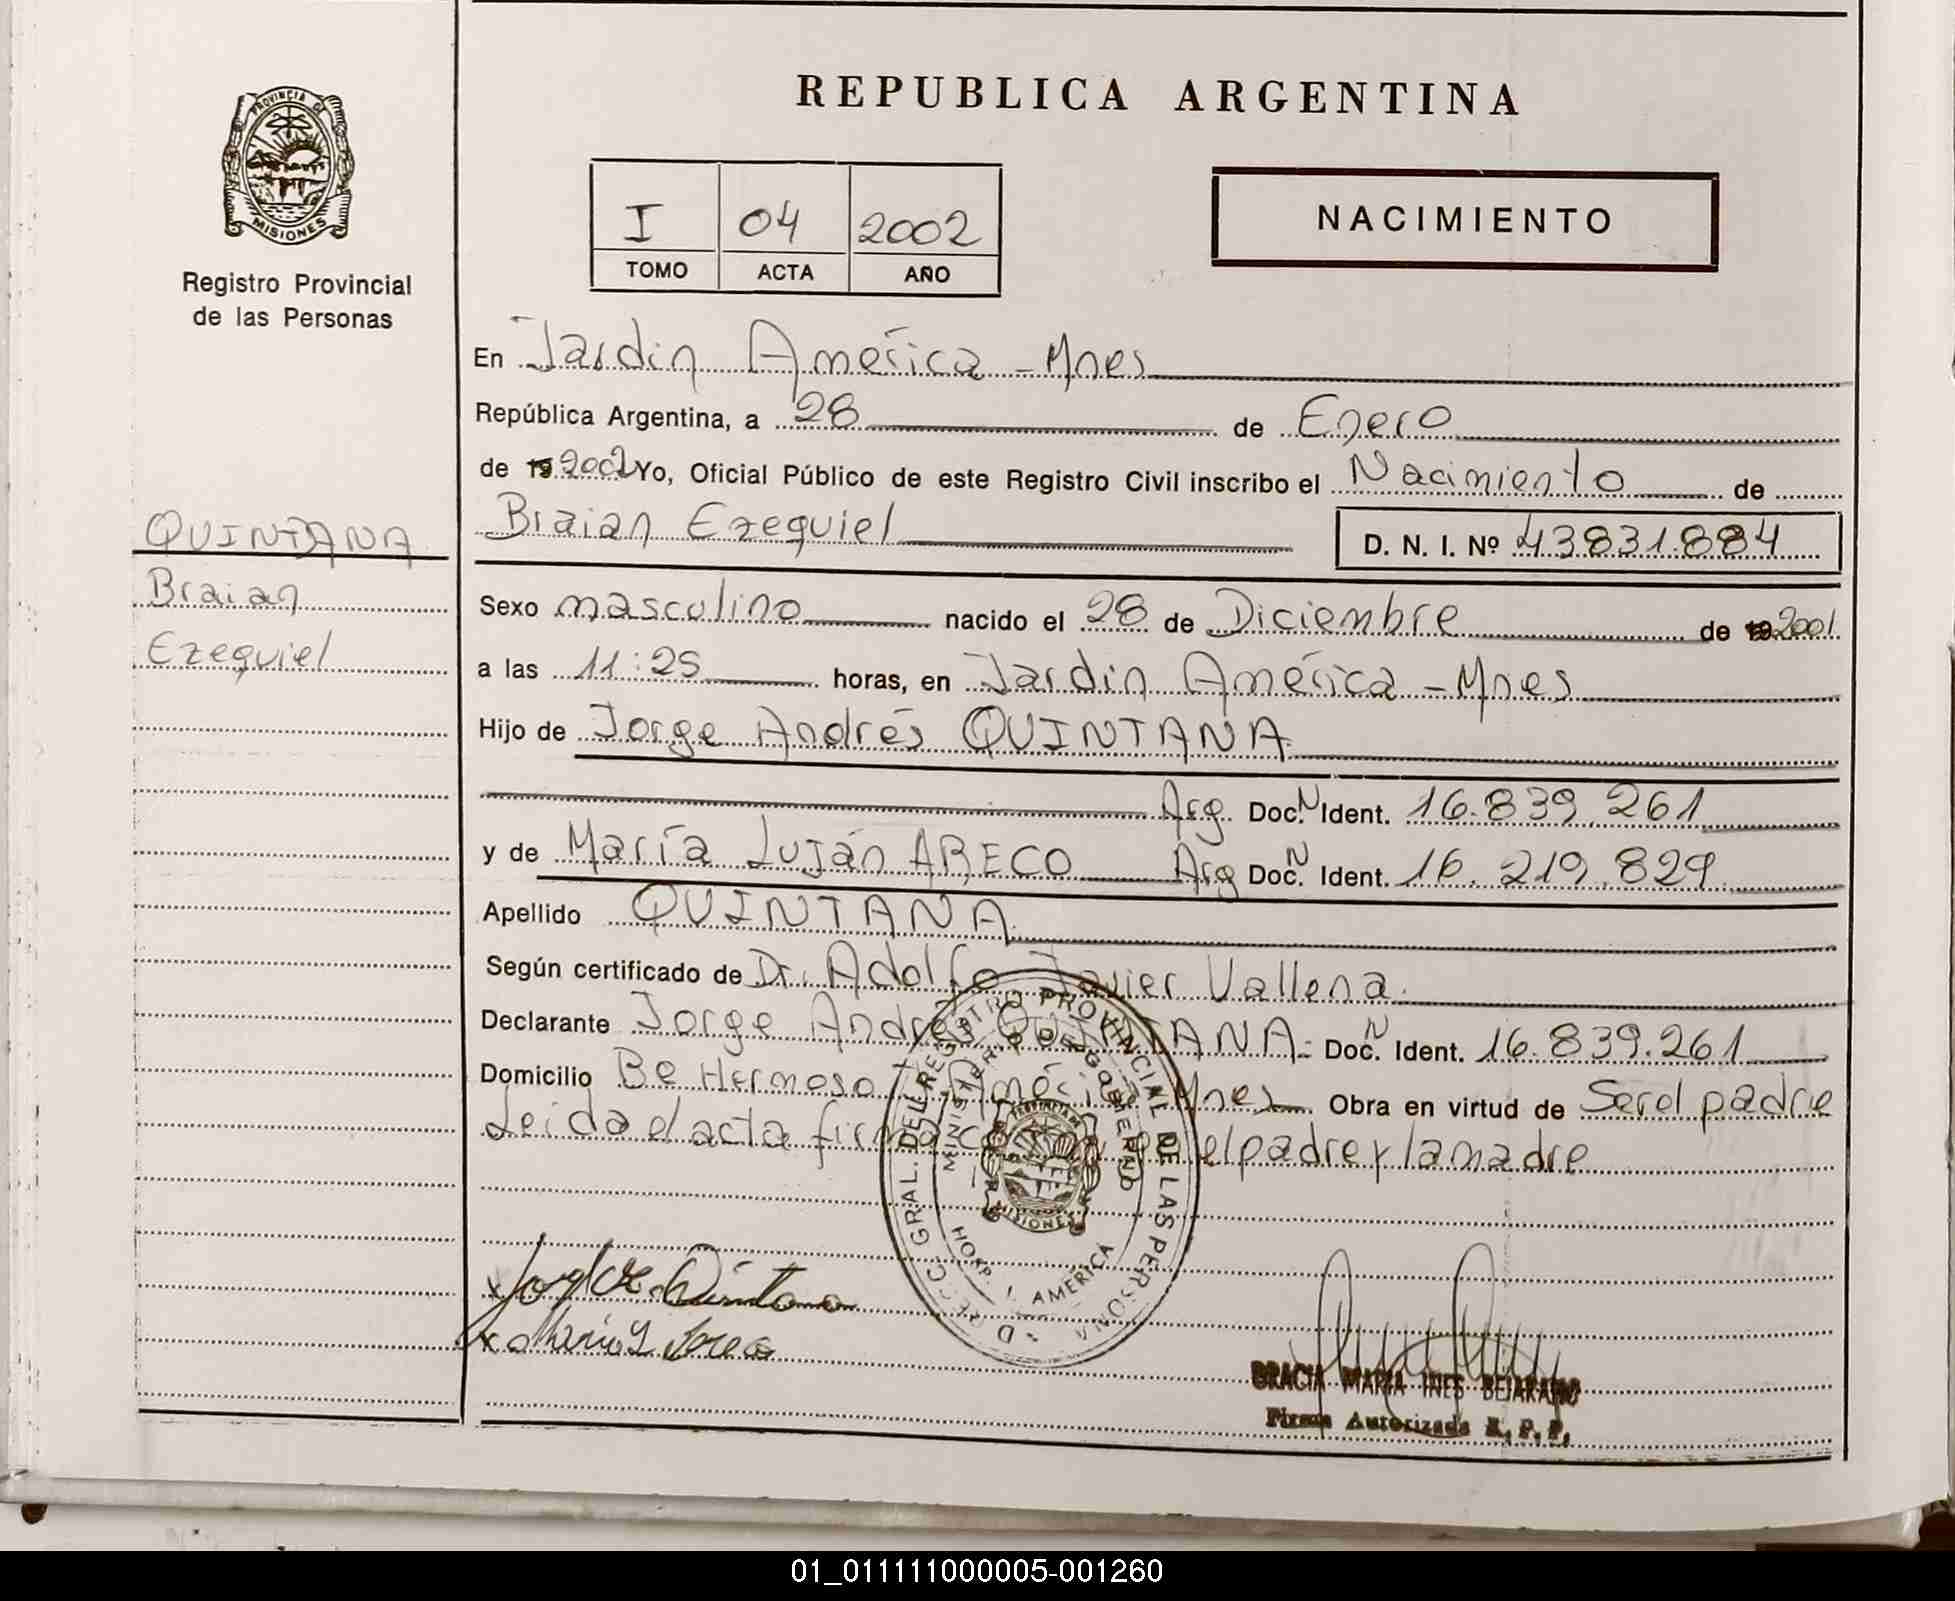 REPUBLICA ARGENTINA
PROVINCIA D
MISIONES
Registro Provincial
de las Personas
I 04 2002
TOMO ACTA AÑO
NACIMIENTO
En Jardin América - Mnes
República Argentina, a 28 de Enero
de 19 2002 Yo, Oficial Público de este Registro Civil inscribo el Nacimiento de
Braian Ezequiel D. N. I. Nº 43831884
QUINTANA
Braian
Ezequiel
Sexo masculino nacido el 28 de Diciembre de 19 2001
a las 11:25 horas, en Jardin América - Mnes
Hijo de Jorge Andrés QUINTANA
Arg Doc. N Ident. 16.839.261
y de María Luján ARECO Arg Doc. N Ident. 16.219.829
Apellido QUINTANA
Según certificado de Dr. Adolfo Javier Vallena
Declarante Jorge Andrés QUINTANA - Doc. N Ident. 16.839.261
Domicilio Be Hermoso J. América Mnes Obra en virtud de Ser el padre
Leida el acta firma el padre y la madre
DIRECC. GRAL. DEL REGISTRO PROVINCIAL DE LAS PERSONAS
MINISTERIO DE GOBIERNO
PROVINCIA DE
MISIONES
HOSP. J. AMERICA
x Jorge Quintana
x Maria L Areco
GRACIA MARIA INES BEJARANO
Firma Autorizada R. P. P.
01_011111000005-001260